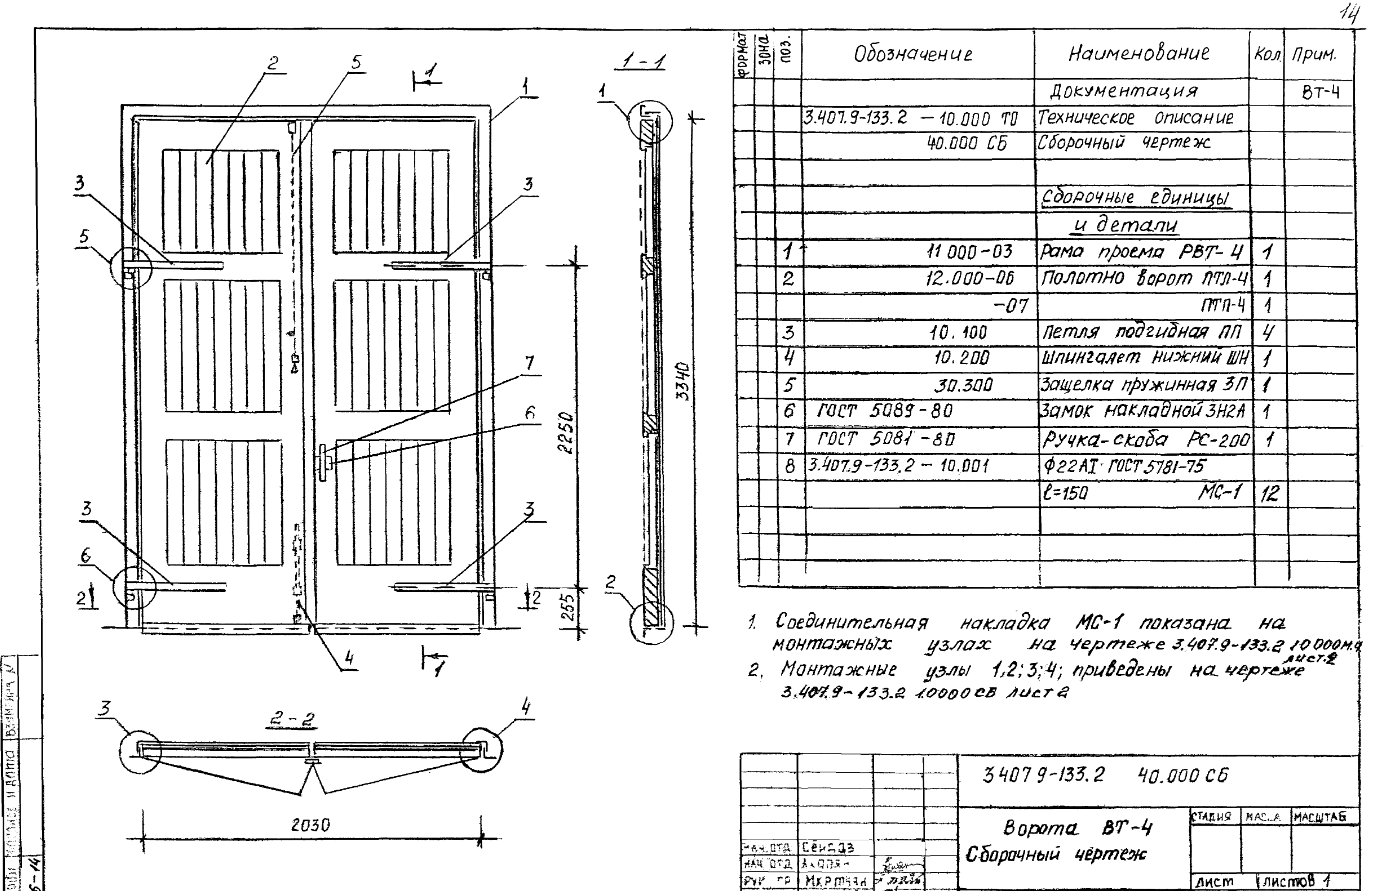 14
2
5
1
1
1-1
1
3
3
5
7
6
2250
3340
3
3
6
2
2
255
2
4
1
3
2-2
4
2030
ФОРМАТ ЗОНА ПОЗ. Обозначение Наименование Кол. Прим.
Документация ВТ-4
3.407.9-133.2 -10.000 ТО Техническое описание
40.000 СБ Сборочный чертеж
Сборочные единицы
и детали
1 11 000-03 Рама проема РВТ-4 1
2 12.000-06 Полотно ворот ПТЛ-4 1
-07 ПТП-4 1
3 10.100 Петля подгибная ПП 4
4 10.200 Шпингалет нижний ШН 1
5 30.300 Защелка пружинная ЗП 1
6 ГОСТ 5089-80 Замок накладной ЗН2А 1
7 ГОСТ 5081-80 Ручка-скоба РС-200 1
8 3.407.9-133.2-10.001 Ф22АI ГОСТ 5781-75
ℓ=150 МС-1 12
1. Соединительная накладка МС-1 показана на
монтажных узлах на чертеже 3.407.9-133.2 10000МЧ
лист.2
2. Монтажные узлы 1,2;3;4; приведены на чертеже
3.407.9-133.2 10000СБ лист 2
3 407 9-133.2 40.000 СБ
Ворота ВТ-4
Сборочный чертеж
СТАДИЯ МАСШТАБ
НАЧ.ОТД
НАЧ ОТД
Мкртчян
ЛИСТ ЛИСТОВ 1
5-14